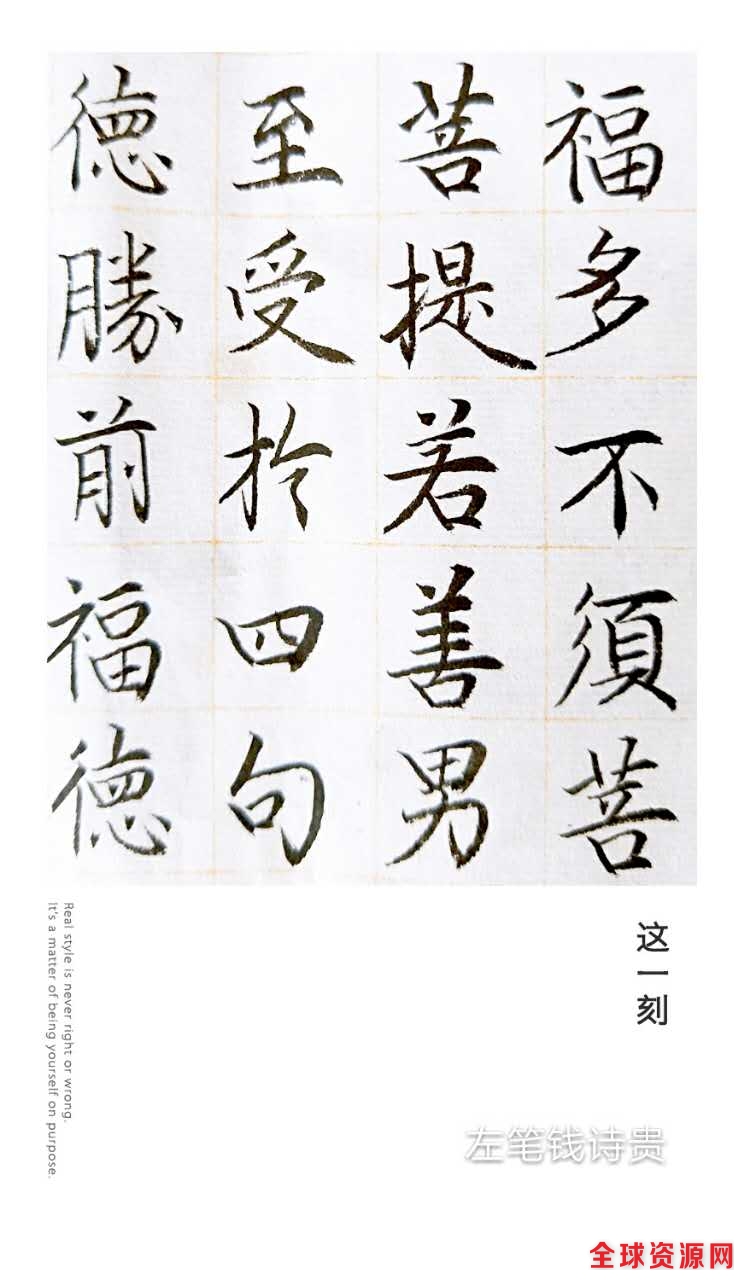 福多不須菩
菩提若善男
至受於四句
德勝前福德
这一刻
Real style is never right or wrong.
It's a matter of being yourself on purpose.
左笔钱诗贵
全球资源网